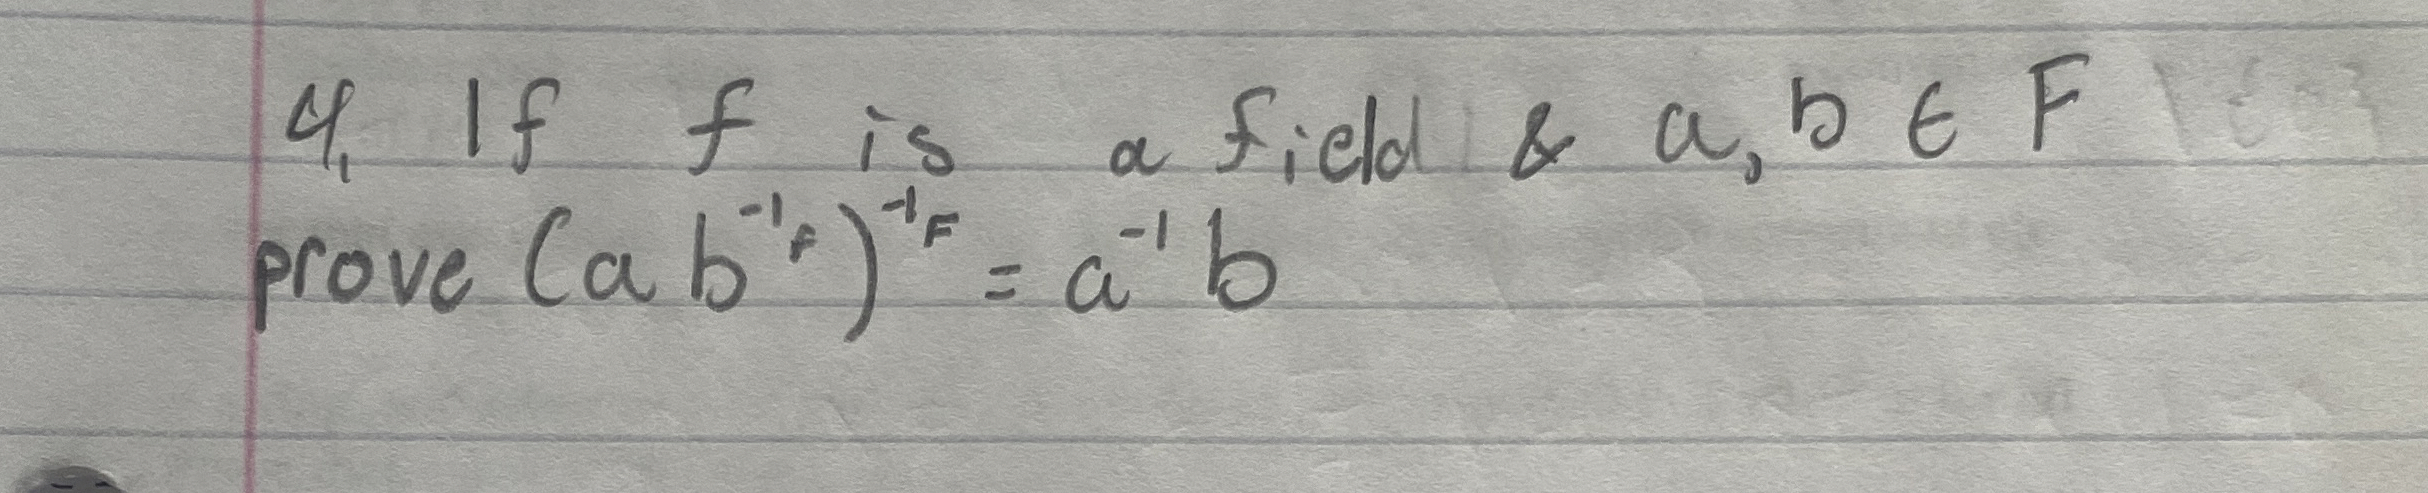 4. If f is a field & a, b ∈ F
prove (a b⁻¹ꟳ)⁻¹ꟳ = a⁻¹ b